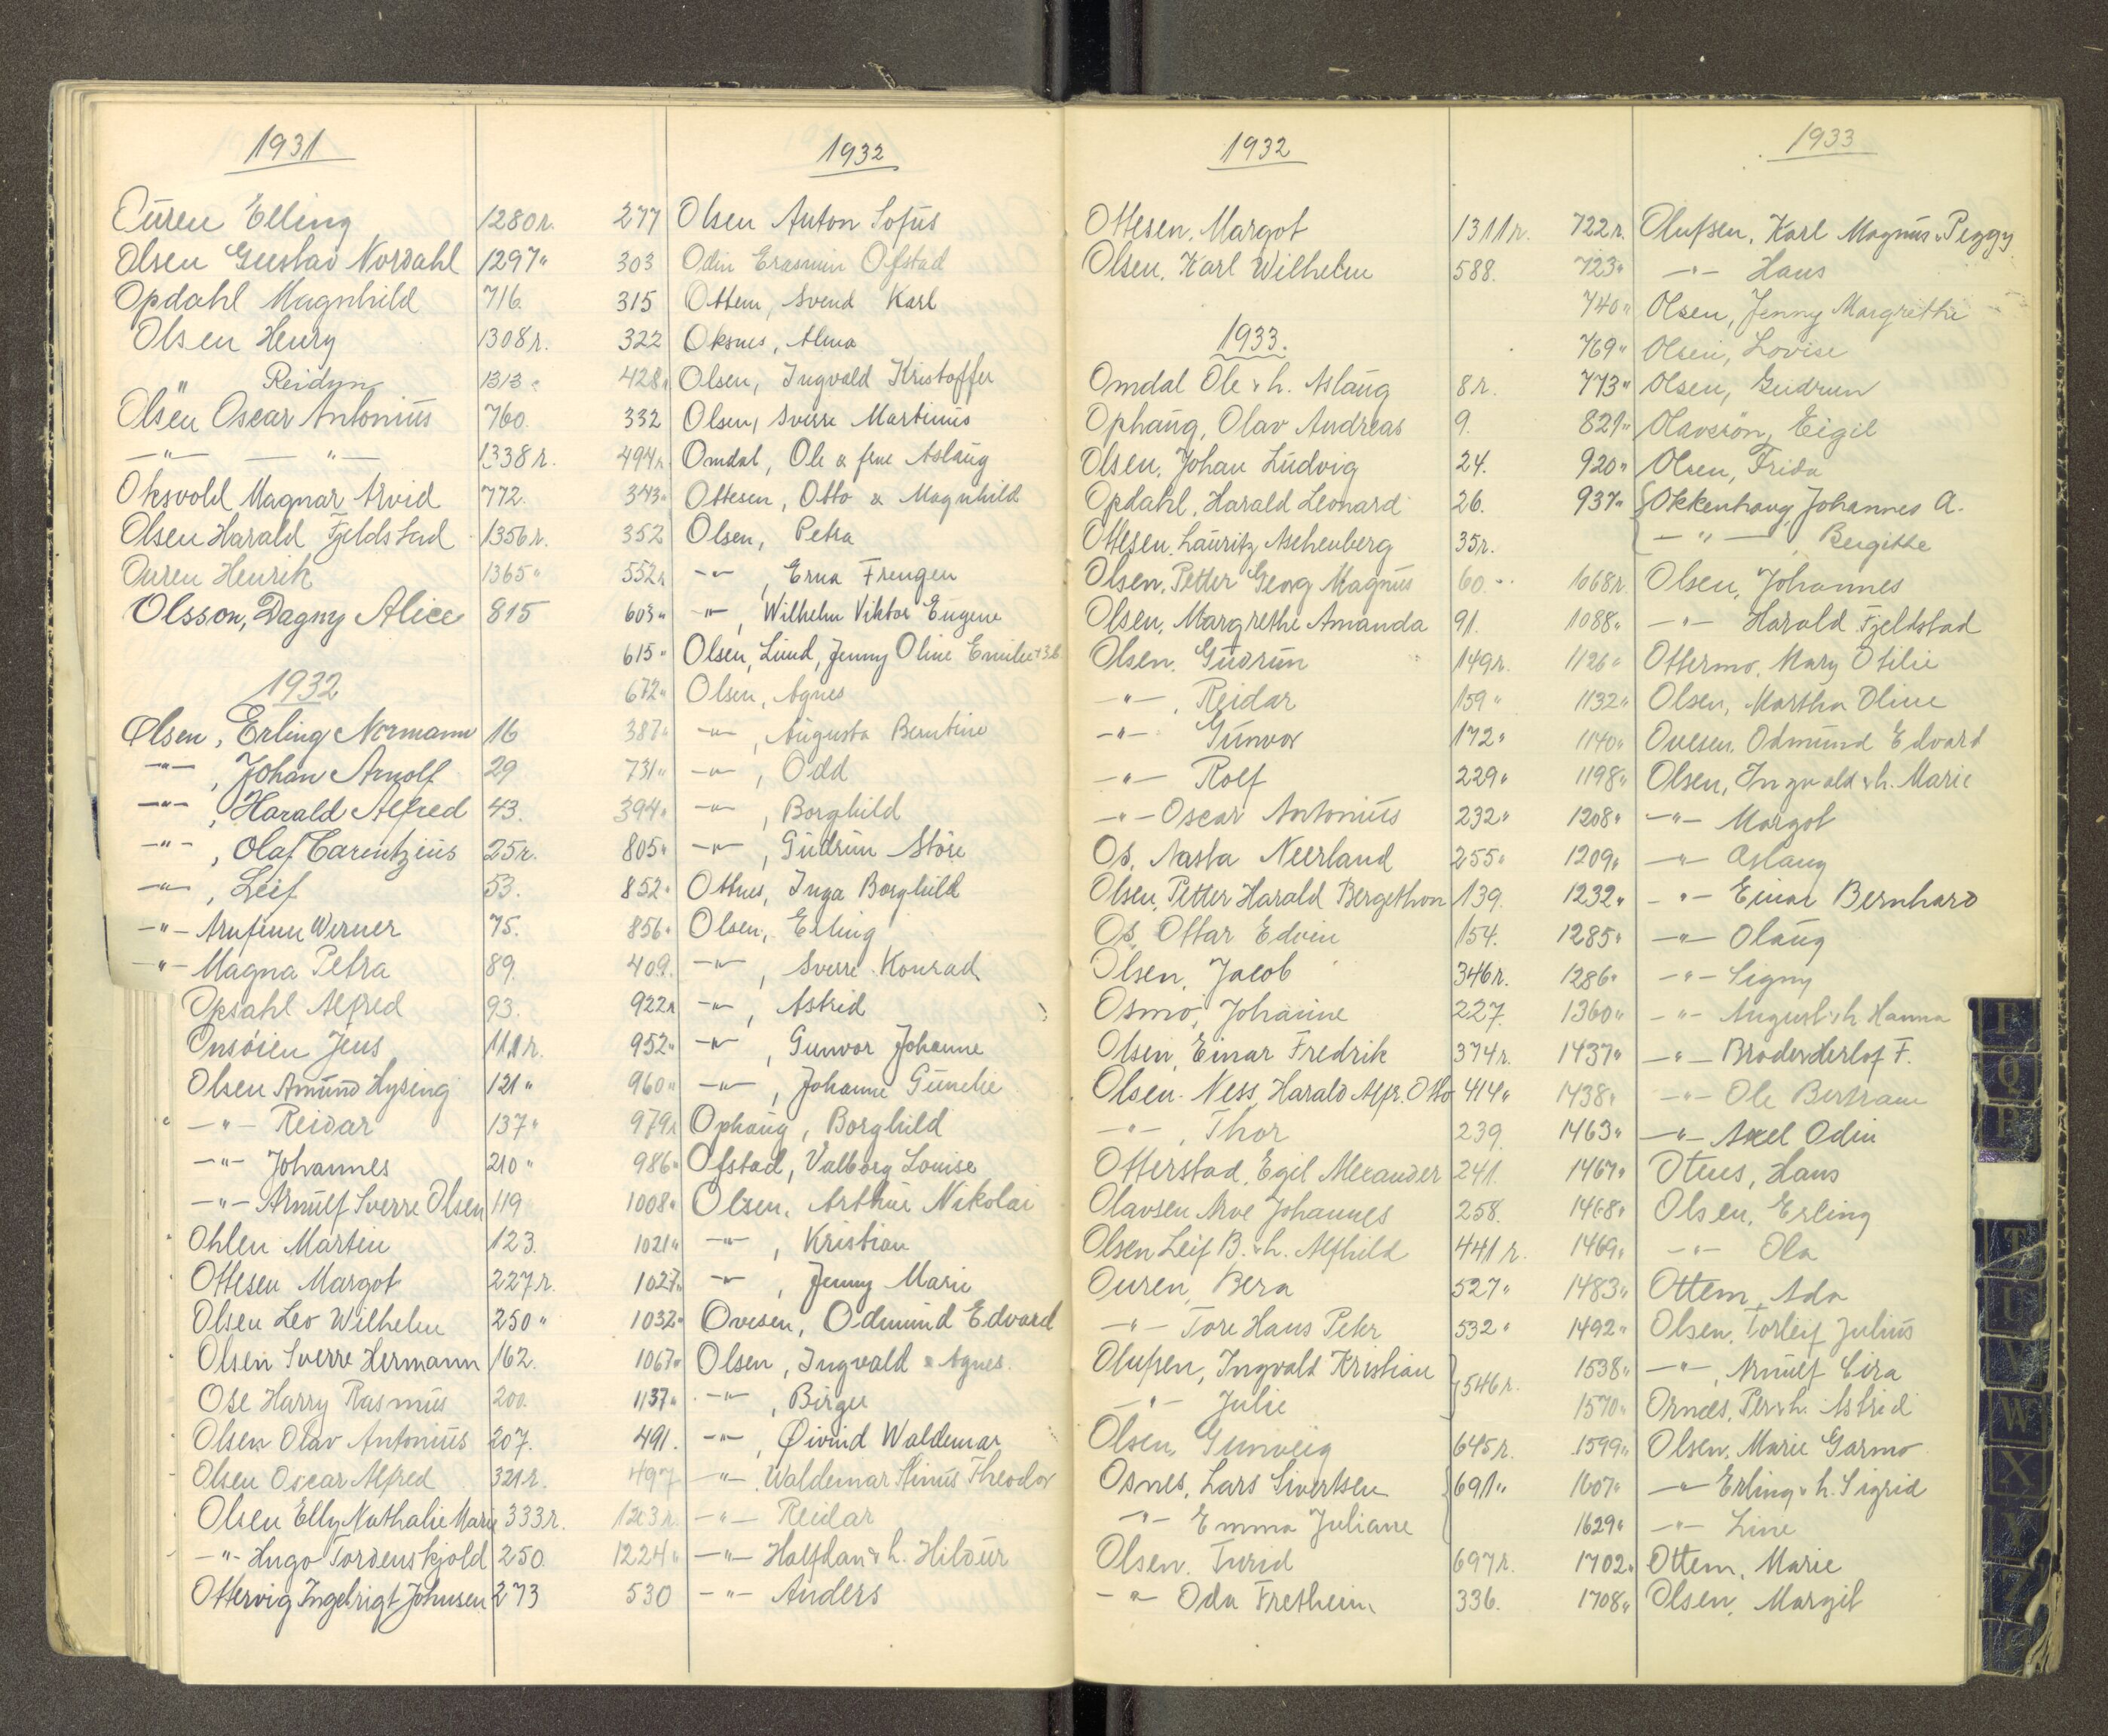 1931
Ouren Elling 1280 r.
Olsen Gustav Nordahl 1297 "
Opdahl Magnhild 716.
Olsen Henry 1308 r.
" Reidun 1313 "
Olsen Oscar Antonius 760.
—"— —"— 1338 r.
Oksvold Magnar Arvid 772.
Olsen Harald Fjeldstad 1356 r.
Ouren Henrik 1365 "
Olsson, Dagny Alice 815
1932
Olsen, Erling Normann 16
—"—, Johan Arnolf 29
—"—, Harald Alfred 43.
—"—, Olaf Carentzius 25 r.
—"—, Leif 53.
—"— Arnfinn Werner 75.
—"— Magna Petra 89.
Opdahl Alfred 93.
Onsöien Jens 111 r.
Olsen Amund Hysing 121 "
—"— Reidar 137 "
—"— Johannes 210 "
—"— Arnulf Sverre Olsen 119
Ohlen Martin 123.
Ottesen Margot 227 r.
Olsen Leo Wilhelm 250 "
Olsen Sverre Hermann 162.
Ose Harry Rasmus 200.
Olsen Olav Antonius 207.
Olsen Oscar Alfred 321 r.
Olsen Elly Nathalie Marie 333 r.
—"— Hugo Tordenskjold 250.
Ottervig Ingebrigt Johnsen 273
1932
277 Olsen Anton Sofus
303 Odin Erasmin Ofstad
315 Ottem, Svend Karl
322 Oksnes, Alma
428 r. Olsen, Ingvald Kristoffer
332 Olsen, Sverre Martinus
494 r. Omdal, Ole & frue Aslaug
343 " Ottesen, Otto & Magnhild
352 Olsen, Petra
552 r. —"—, Erna Frengen
603 " —"—, Wilhelm Viktor Eugene
615 " Olsen, Lund, Jenny Oline Emilie + 3 b.
672 " Olsen, Agnes
387 " —"—, Augusta Berntine
731 " —"—, Odd
394 " —"—, Borghild
805 " —"—, Gudrun Störe
852 " Ottnes, Inga Borghild
856 " Olsen, Erling
409. —"—, Sverre Konrad
922 r —"—, Astrid
952 " —"—, Gunvor Johanne
960 " —"—, Johanne Gunelie
979 r Ophaug, Borghild
986 " Ofstad, Valborg Louise
1008 " Olsen, Arthur Nikolai
1021 " —"—, Kristian
1027 " —"—, Jenny Marie
1032 " Ovesen, Odmund Edvard
1067 " Olsen, Ingvald & Agnes.
1137 " —"—, Birger
491. —"—, Øivind Waldemar
497 —"— Waldemar Stinus Theodor
1203 r. —"— Reidar
1224 " —"— Halfdan & h. Hildur
530 —"— Anders
1932
Ottesen, Margot 1311 r.
Olsen, Karl Wilhelm 588.
1933.
Omdal Ole & h. Aslaug 8 r.
Ophaug, Olav Andreas 9.
Olsen, Johan Ludvig 24.
Opdahl, Harald Leonard 26.
Ottesen, Lauritz Aschenberg 35 r.
Olsen, Petter Georg Magnus 60. "
Olsen, Margrethe Amanda 91.
Olsen, Gudrun 149 r.
—"—, Reidar 159 "
—"— Gunvor 172 "
—"— Rolf 229 "
—"— Oscar Antonius 232 "
Os, Aasta Neerland 255 "
Olsen, Petter Harald Bergethon 139.
Os, Ottar Edvin 154.
Olsen, Jacob 346 r.
Osmo, Johanne 227.
Olsen, Einar Fredrik 374 r.
Olsen-Ness, Harald Alfr. Otto 414 "
—"—, Thor 239.
Otterstad, Egil Alexander 241.
Olavsen Arve Johannes 258.
Olsen Leif B. & h. Alfhild 441 r.
Ouren, Bera 527 "
—"— Tore Hans Peter 532 "
Olufsen, Ingvald Kristian } 546 r.
—"— Julie
Olsen, Gunveig 645 r.
Osnes, Lars Sivertsen { 691 "
—"— Emma Juliane
Olsen, Turid 697 r.
—"— Oda Fretheim 336.
1933
722 r. Olufsen, Karl Magnus & Peggy
723 " —"— Hans
740 " Olsen, Jenny Margrethe
769 " Olsen, Lovise
773 " Olsen, Gudrun
821 " Olavsön, Eigil
920 " Olsen, Frida
937 " { Okkenhaug, Johannes A.
—"—, Bergitte
1068 r. Olsen, Johannes
1088 " —"— Harald Fjeldstad
1126 " Ottermo, Mary Otilie
1132 " Olsen, Martha Oline
1140 " Ovesen, Odmund Edvard
1198 " Olsen, Ingvald & h. Marie
1208 " —"— Margot
1209 " —"— Aslaug
1232 " —"— Einar Bernhard
1285 " —"— Olaug
1286 " —"— Signy
1360 " —"— August & h Hanna
1437 " —"— Broder Herlof F.
1438 " —"— Ole Bertram
1463 " —"— Axel Odin
1467 " Otnes, Hans
1468 " Olsen, Erling
1469 " —"— Ola
1483 " Ottem, Ada
1492 " Olsen, Torleif Julius
1538 " —"—, Arnulf Eira
1570 " Ornæs, Per & h. Astrid
1599 " Olsen, Marie Garmo
1607 " —"— Erling & h. Sigrid
1629 " —"— Line
1702 " Ottem, Marie
1708 " Olsen, Margit
P
Q
T
U
V
W
X
Y
Z